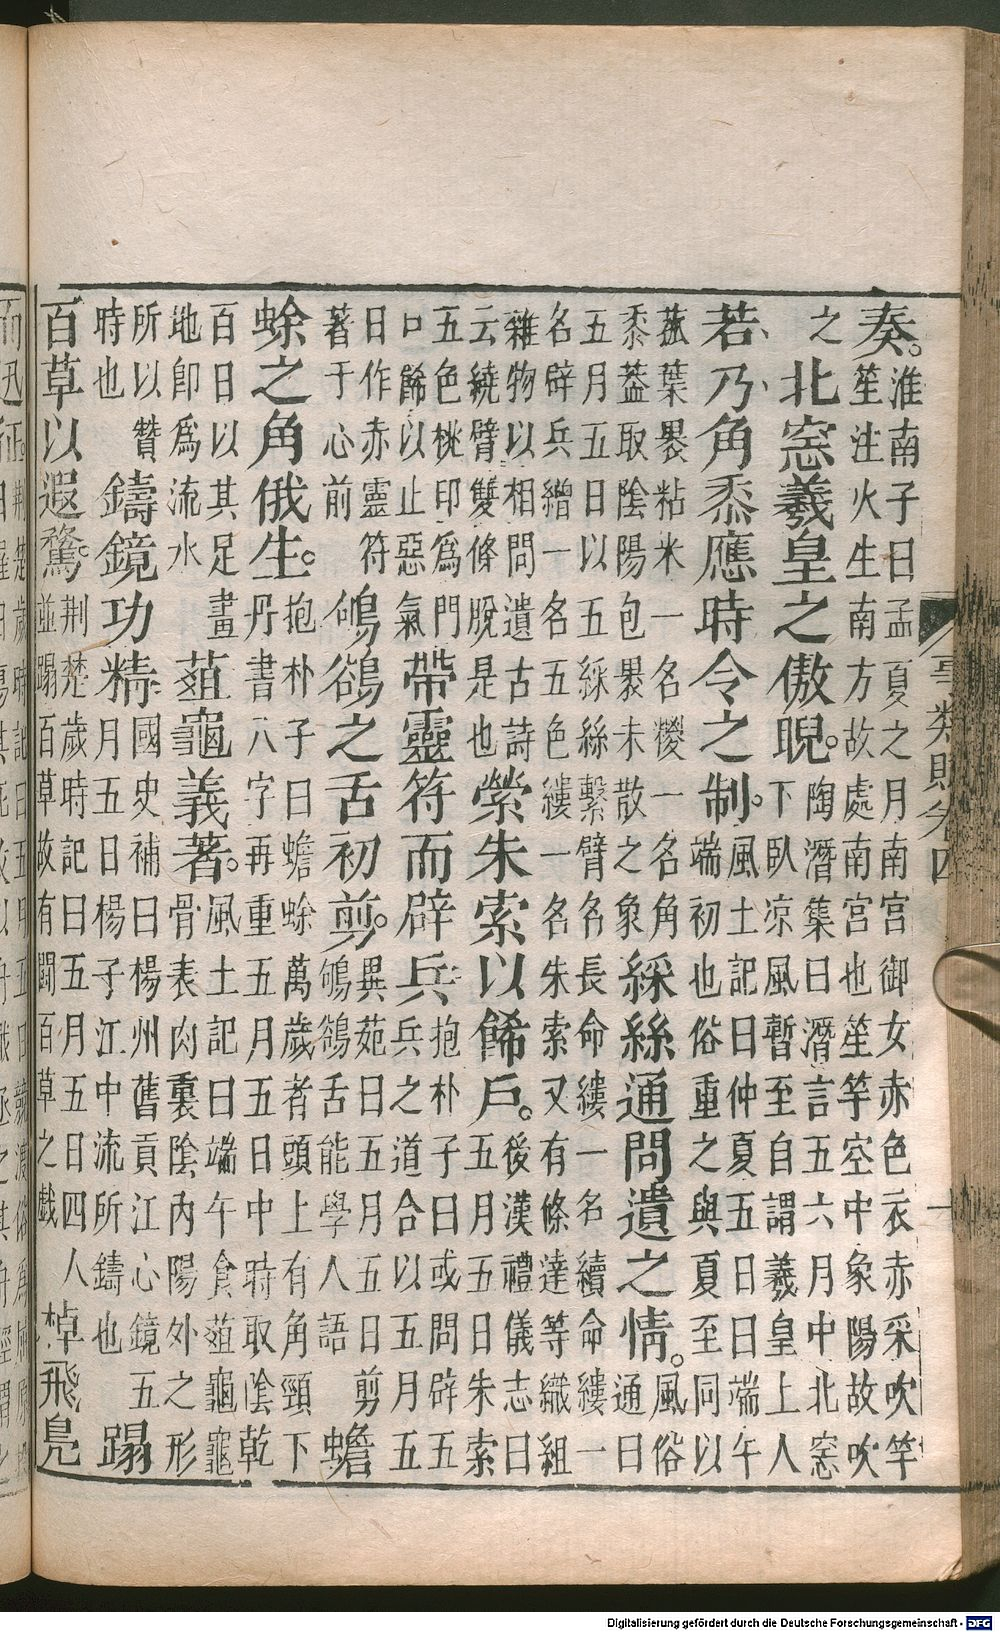 奏。淮南子曰孟夏之月南宫御女赤色衣赤采吹竽
笙注火生南方故處南宫也笙竽空中象陽故吹
之北窓羲皇之傲睨。陶潛集曰潛言五六月中北窓
下臥凉風暫至自謂羲皇上人
若乃角黍應時令之制。風土記曰仲夏五日曰端午
端初也俗重之與夏至同以
菰葉褁粘米一名糉一名角
黍葢取陰陽包褁未散之象
綵絲通問遺之情。風俗
通曰
五月五日以五綵絲繫臂名長命縷一名續命縷一
名辟兵繒一名五色縷一名朱索又有條達等織組
雜物以相問遺古詩
云繞臂雙條脫是也
縈朱索以餙戸。後漢禮儀志曰
五月五日朱索
五色桃印爲門
口餙以止惡氣
帶靈符而辟兵抱朴子曰或問辟五
兵之道合以五月五
日作赤靈符
著于心前
鴝鵒之舌初剪。異苑曰五月五日剪
鴝鵒舌能學人語
蟾
蜍之角俄生。抱朴子曰蟾蜍萬歲者頭上有角頸下
丹書八字再重五月五日中時取陰乾
百日以其足畫
地卽爲流水
葅龜義著。風土記曰端午食葅龜龜
骨表肉裏陰內陽外之形
所以贊
時也
鑄鏡功精國史補曰楊州舊貢江心鏡五
月五日楊子江中流所鑄也
蹋
百草以遐騖。荆楚歲時記曰五月五日四人
並蹋百草故有鬪百草之戲
棹飛鳧
事類賦卷四 十
Digitalisierung gefördert durch die Deutsche Forschungsgemeinschaft - DFG